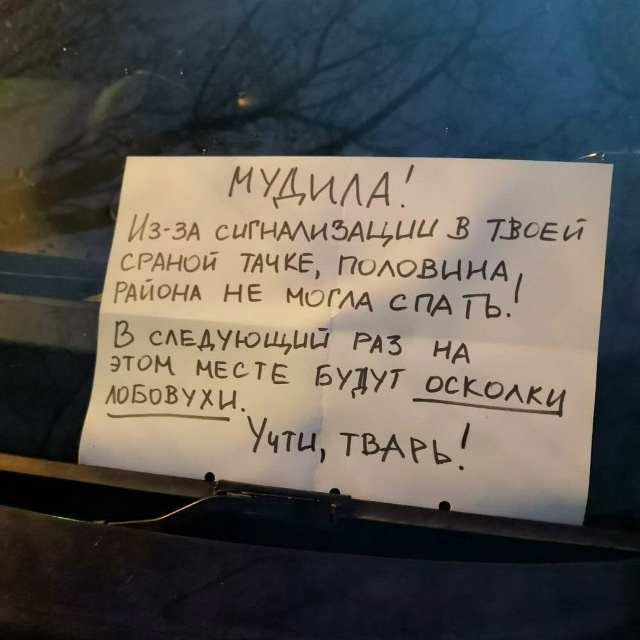 МУДИЛА!
ИЗ-ЗА СИГНАЛИЗАЦИИ В ТВОЕЙ
СРАНОЙ ТАЧКЕ, ПОЛОВИНА
РАЙОНА НЕ МОГЛА СПАТЬ!
В СЛЕДУЮЩИЙ РАЗ НА
ЭТОМ МЕСТЕ БУДУТ ОСКОЛКИ
ЛОБОВУХИ.
УЧТИ, ТВАРЬ!